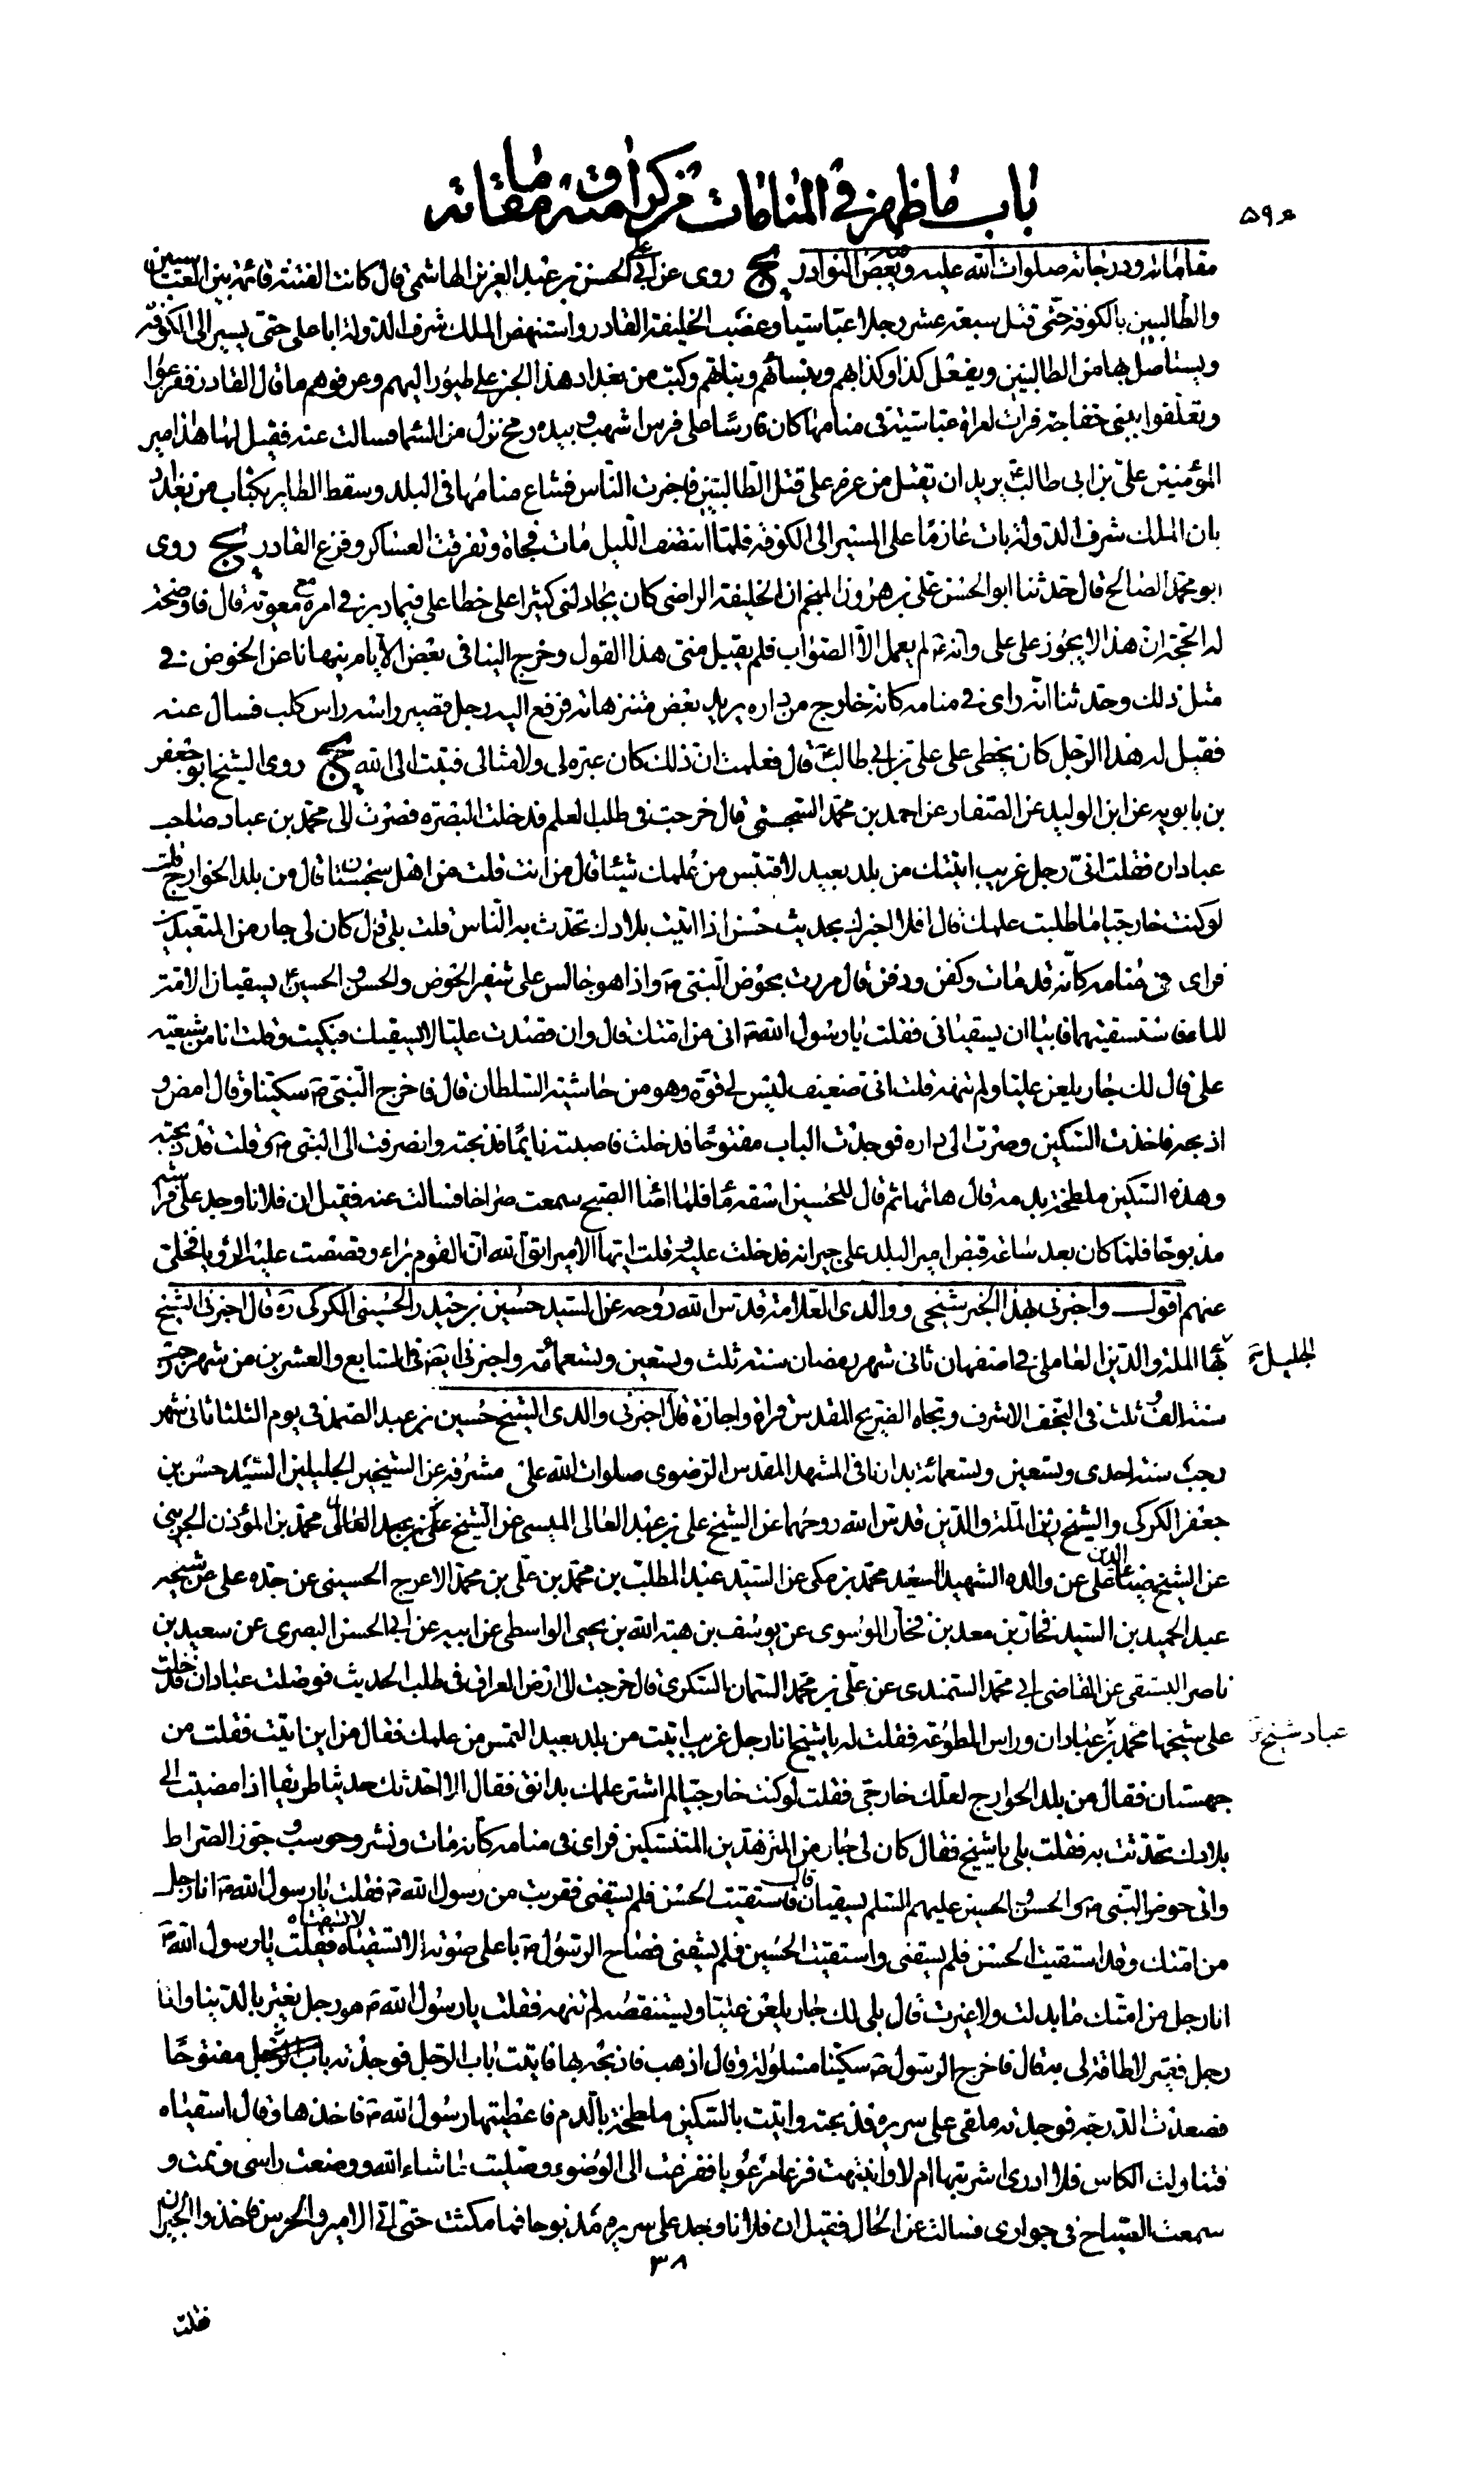 باب ما ظهر في المنامات من كراماته و مقاماته
۵۹۶
مقاماته ودرجاته صلوات الله عليه وفيه بعض النوادر يج روى عن ابي الحسن علي بن عبد العزيز الهاشمي قال كانت الفتنة قائمة بين العباسيين
والطالبين بالكوفة حتى قتل سبعة عشر رجلا عباسيا وغضب الخليفة القادر واستنهض الملك شرف الدولة ابا على حتى يسير الى الكوفة
ويستاصل بها من الطالبيين ويفعل كذا وكذا بهم وبنسائهم وبناتهم وكتب من بغداد هذا الخبر على طيور اليهم وعرفوهم ما قال القادر ففزعوا
وتعلقوا ببنى خفاجة فرات امراة عباسية في منامها كان فارسا على فرس اشهب وبيده رمح نزل من السماء فسالت عنه فقيل لها هذا امير
المؤمنين علي بن ابى طالب ع يريد ان يقتل من عزم على قتل الطالبيين فاخبرت الناس فشاع منامها في البلد وسقط الطاير بكتاب من بغداد
بان الملك شرف الدولة بات عازما على المسير الى الكوفة فلما انتصف الليل مات فجاة وتفرقت العساكر وفزع القادر يج روى
ابو محمد الصالح قال حدثنا ابو الحسن علي بن هرون المنجم ان الخليفة الراضى كان يجادلنى كثيرا على خطا على فيما دبر في امره مع معوية قال فاوضحت
له الحجة ان هذا لا يجوز على على وانه ع لم يعمل الا الصواب فلم يقبل منى هذا القول وخرج الينا في بعض الايام ينهانا عن الخوض في
مثل ذلك وحدثنا انه راى في منامه كانه خارج من داره يريد بعض متنزهاته فرفع اليه رجل قصير راسه راس كلب فسال عنه
فقيل له هذا الرجل كان يخطى على على بن ابي طالب ع قال فعلمت ان ذلك كان عبرة لى ولامثالى فتبت الى الله يج روى الشيخ ابو جعفر
بن بابويه عن ابن الوليد عن الصفار عن احمد بن محمد السجستي قال خرجت في طلب العلم فدخلت البصرة فصرت الى محمد بن عباد صاحب
عبادان فقلت انى رجل غريب اتيتك من بلد بعيد لاقتبس من علمك شيئا قال من انت قلت من اهل سجستان قال من بلد الخوارج قلت
لو كنت خارجيا ما طلبت علمك قال افلا اخبرك بحديث حسن اذا اتيت بلادك تحدث به الناس قلت بلى قال كان لى جار من المتعبدين
فراى في منامه كانه قد مات وكفن ودفن قال مررت بحوض النبى ص واذا هو جالس على شفير الحوض والحسن والحسين ع يسقيان الامة
الماء فاستسقيتهما فابيا ان يسقيانى فقلت يا رسول الله ص انى من امتك قال وان قصدت عليا لا يسقيك فبكيت وقلت انا من شيعة
على قال لك جار يلعن عليا ولم تنهه قلت انى ضعيف ليس لي قوة وهو من حاشية السلطان قال فاخرج النبى ص سكينا وقال امض و
اذبحه فاخذت السكين وصرت الى داره فوجدت الباب مفتوحا فدخلت فاصبته نايما فذبحته وانصرفت الى النبى ص وقلت قد ذبحته
وهذه السكين ملطخة بدمه قال هاتها ثم قال للحسين اسقه ماء فلما اضاء الصبح سمعت صراخا فسالت عنه فقيل ان فلانا وجد على فراشه
مذبوحا فلما كان بعد ساعة قبض امير البلد على جيرانه فدخلت عليه وقلت ايها الامير اتق الله ان القوم براء وقصصت عليه الرؤيا فخلى
عنهم اقول واخبرنى بهذا الخبر شيخى ووالدى العلامة قدس الله روحه عن السيد حسين بن حيدر الحسينى الكركى ره قال اخبرنى الشيخ
الجليل بهاء الملة والدين العاملى في اصفهان ثانى شهر رمضان سنة ثلث وتسعين وتسعمائة واخبرنى ايضا فى السابع والعشرين من شهر
سنة الف وثلث فى النجف الاشرف وتجاه الضريح المقدس قراءة واجازة قال اخبرنى والدى الشيخ حسين بن عبد الصمد في يوم الثلثا ثانى شهر
رجب سنة احدى وتسعين وتسعمائة بدارنا في المشهد المقدس الرضوى صلوات الله على مشرفه عن الشيخين الجليلين السيد حسن بن
جعفر الكركى والشيخ زين الملة والدين قدس الله روحهما عن الشيخ على بن عبد العالى الميسى عن الشيخ محمد بن المؤذن الجزينى
عن الشيخ ضياء الدين على عن والده الشهيد السعيد محمد بن مكى عن السيد عبد المطلب بن محمد بن على بن محمد الاعرج الحسينى عن جده على عن شيخه
عبد الحميد بن السيد فخار بن معد بن فخار الموسوى عن يوسف بن هبة الله بن يحيى الواسطى عن ابيه عن ابى الحسن البصرى عن سعيد بن
ناصر البستقى عن القاضى ابى محمد السمندى عن علي بن محمد السمان السكرى قال خرجت الى ارض العراق في طلب الحديث فوصلت عبادان فدخلت
على شيخها محمد بن عباد شيخ عبادان وراس المطوعة فقلت له يا شيخ انا رجل غريب اتيت من بلد بعيد التمس من علمك فقال من اين اتيت فقلت من
جهستان فقال من بلد الخوارج لعلك خارجى فقلت لو كنت خارجيا لم اشتر علمك بدانق فقال الا احدثك حديثا طريفا اذا مضيت الى
بلادك تحدثت به فقلت بلى يا شيخ فقال كان لى جار من المتزهدين المتنسكين فراى فى منامه كانه مات ونشر وحوسب وجوز الصراط
واتى حوض النبى ص والحسن والحسين عليهم السلم يسقيان قال فاستقيت الحسن فلم يسقنى فقربت من رسول الله ص فقلت يا رسول الله ص انا رجل
من امتك وقد استقيت الحسن فلم يسقنى واستقيت الحسين فلم يسقنى فصاح الرسول ص باعلى صوته لا تسقياه لا تسقياه فقلت يا رسول الله ص
انا رجل من امتك ما بدلت ولا غيرت قال بلى لك جار يلعن عليا ويستنقصه لم تنهه فقلت يا رسول الله ص هو رجل يغتر بالدنيا وانا
رجل فقير لا طاقة لى به قال فاخرج الرسول ص سكينا مسلولة وقال اذهب فاذبحه بها فاتيت باب الرجل فوجدته مفتوحا
فصعدت الدرجة فوجدته ملقى على سريره فذبحته واتيت بالسكين ملطخة بالدم فاعطيتها رسول الله ص فاخذها وقال اسقياه
فتناولت الكاس فلا ادرى اشربتها ام لا وانتبهت فزعا مرعوبا ففزعت الى الوضوء وصليت ما شاء الله ووضعت راسى ونمت و
سمعت الصياح فى جوارى فسالت عن الحال فقيل ان فلانا وجد على سريره مذبوحا فما مكثت حتى اتى الامير والحرس فاخذوا الجيران
۳۸
فقلت